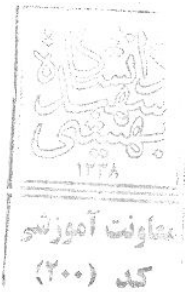 دانشگاه
شهید
بهشتی
۱۳۳۸
معاونت آموزشی
کد (۲۰۰)